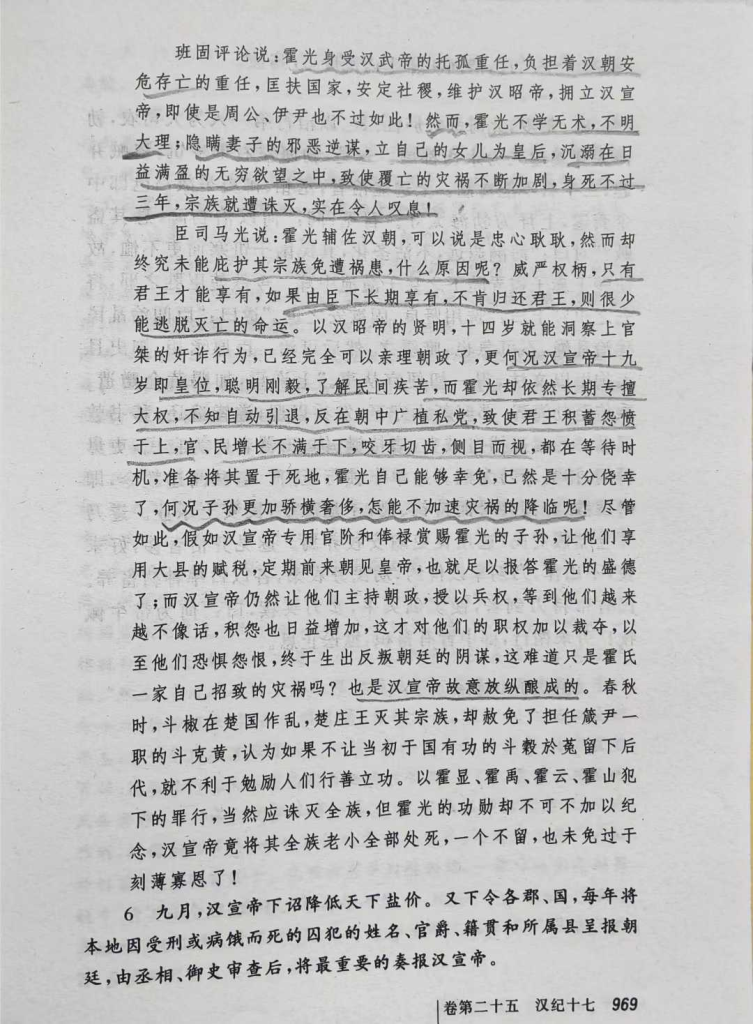 班固评论说:霍光身受汉武帝的托孤重任,负担着汉朝安
危存亡的重任,匡扶国家,安定社稷,维护汉昭帝,拥立汉宣
帝,即使是周公、伊尹也不过如此!然而,霍光不学无术,不明
大理;隐瞒妻子的邪恶逆谋,立自己的女儿为皇后,沉溺在日
益满盈的无穷欲望之中,致使覆亡的灾祸不断加剧,身死不过
三年,宗族就遭诛灭,实在令人叹息!
臣司马光说:霍光辅佐汉朝,可以说是忠心耿耿,然而却
终究未能庇护其宗族免遭祸患,什么原因呢?威严权柄,只有
君王才能享有,如果由臣下长期享有,不肯归还君王,则很少
能逃脱灭亡的命运。以汉昭帝的贤明,十四岁就能洞察上官
桀的奸诈行为,已经完全可以亲理朝政了,更何况汉宣帝十九
岁即皇位,聪明刚毅,了解民间疾苦,而霍光却依然长期专擅
大权,不知自动引退,反在朝中广植私党,致使君王积蓄怨愤
于上,官、民增长不满于下,咬牙切齿,侧目而视,都在等待时
机,准备将其置于死地,霍光自己能够幸免,已然是十分侥幸
了,何况子孙更加骄横奢侈,怎能不加速灾祸的降临呢!尽管
如此,假如汉宣帝专用官阶和俸禄赏赐霍光的子孙,让他们享
用大县的赋税,定期前来朝见皇帝,也就足以报答霍光的盛德
了;而汉宣帝仍然让他们主持朝政,授以兵权,等到他们越来
越不像话,积怨也日益增加,这才对他们的职权加以裁夺,以
至他们恐惧怨恨,终于生出反叛朝廷的阴谋,这难道只是霍氏
一家自己招致的灾祸吗?也是汉宣帝故意放纵酿成的。春秋
时,斗椒在楚国作乱,楚庄王灭其宗族,却赦免了担任箴尹一
职的斗克黄,认为如果不让当初于国有功的斗縠於菟留下后
代,就不利于勉励人们行善立功。以霍显、霍禹、霍云、霍山犯
下的罪行,当然应诛灭全族,但霍光的功勋却不可不加以纪
念,汉宣帝竟将其全族老小全部处死,一个不留,也未免过于
刻薄寡恩了!
6 九月,汉宣帝下诏降低天下盐价。又下令各郡、国,每年将
本地因受刑或病饿而死的囚犯的姓名、官爵、籍贯和所属县呈报朝
廷,由丞相、御史审查后,将最重要的奏报汉宣帝。
卷第二十五 汉纪十七 969